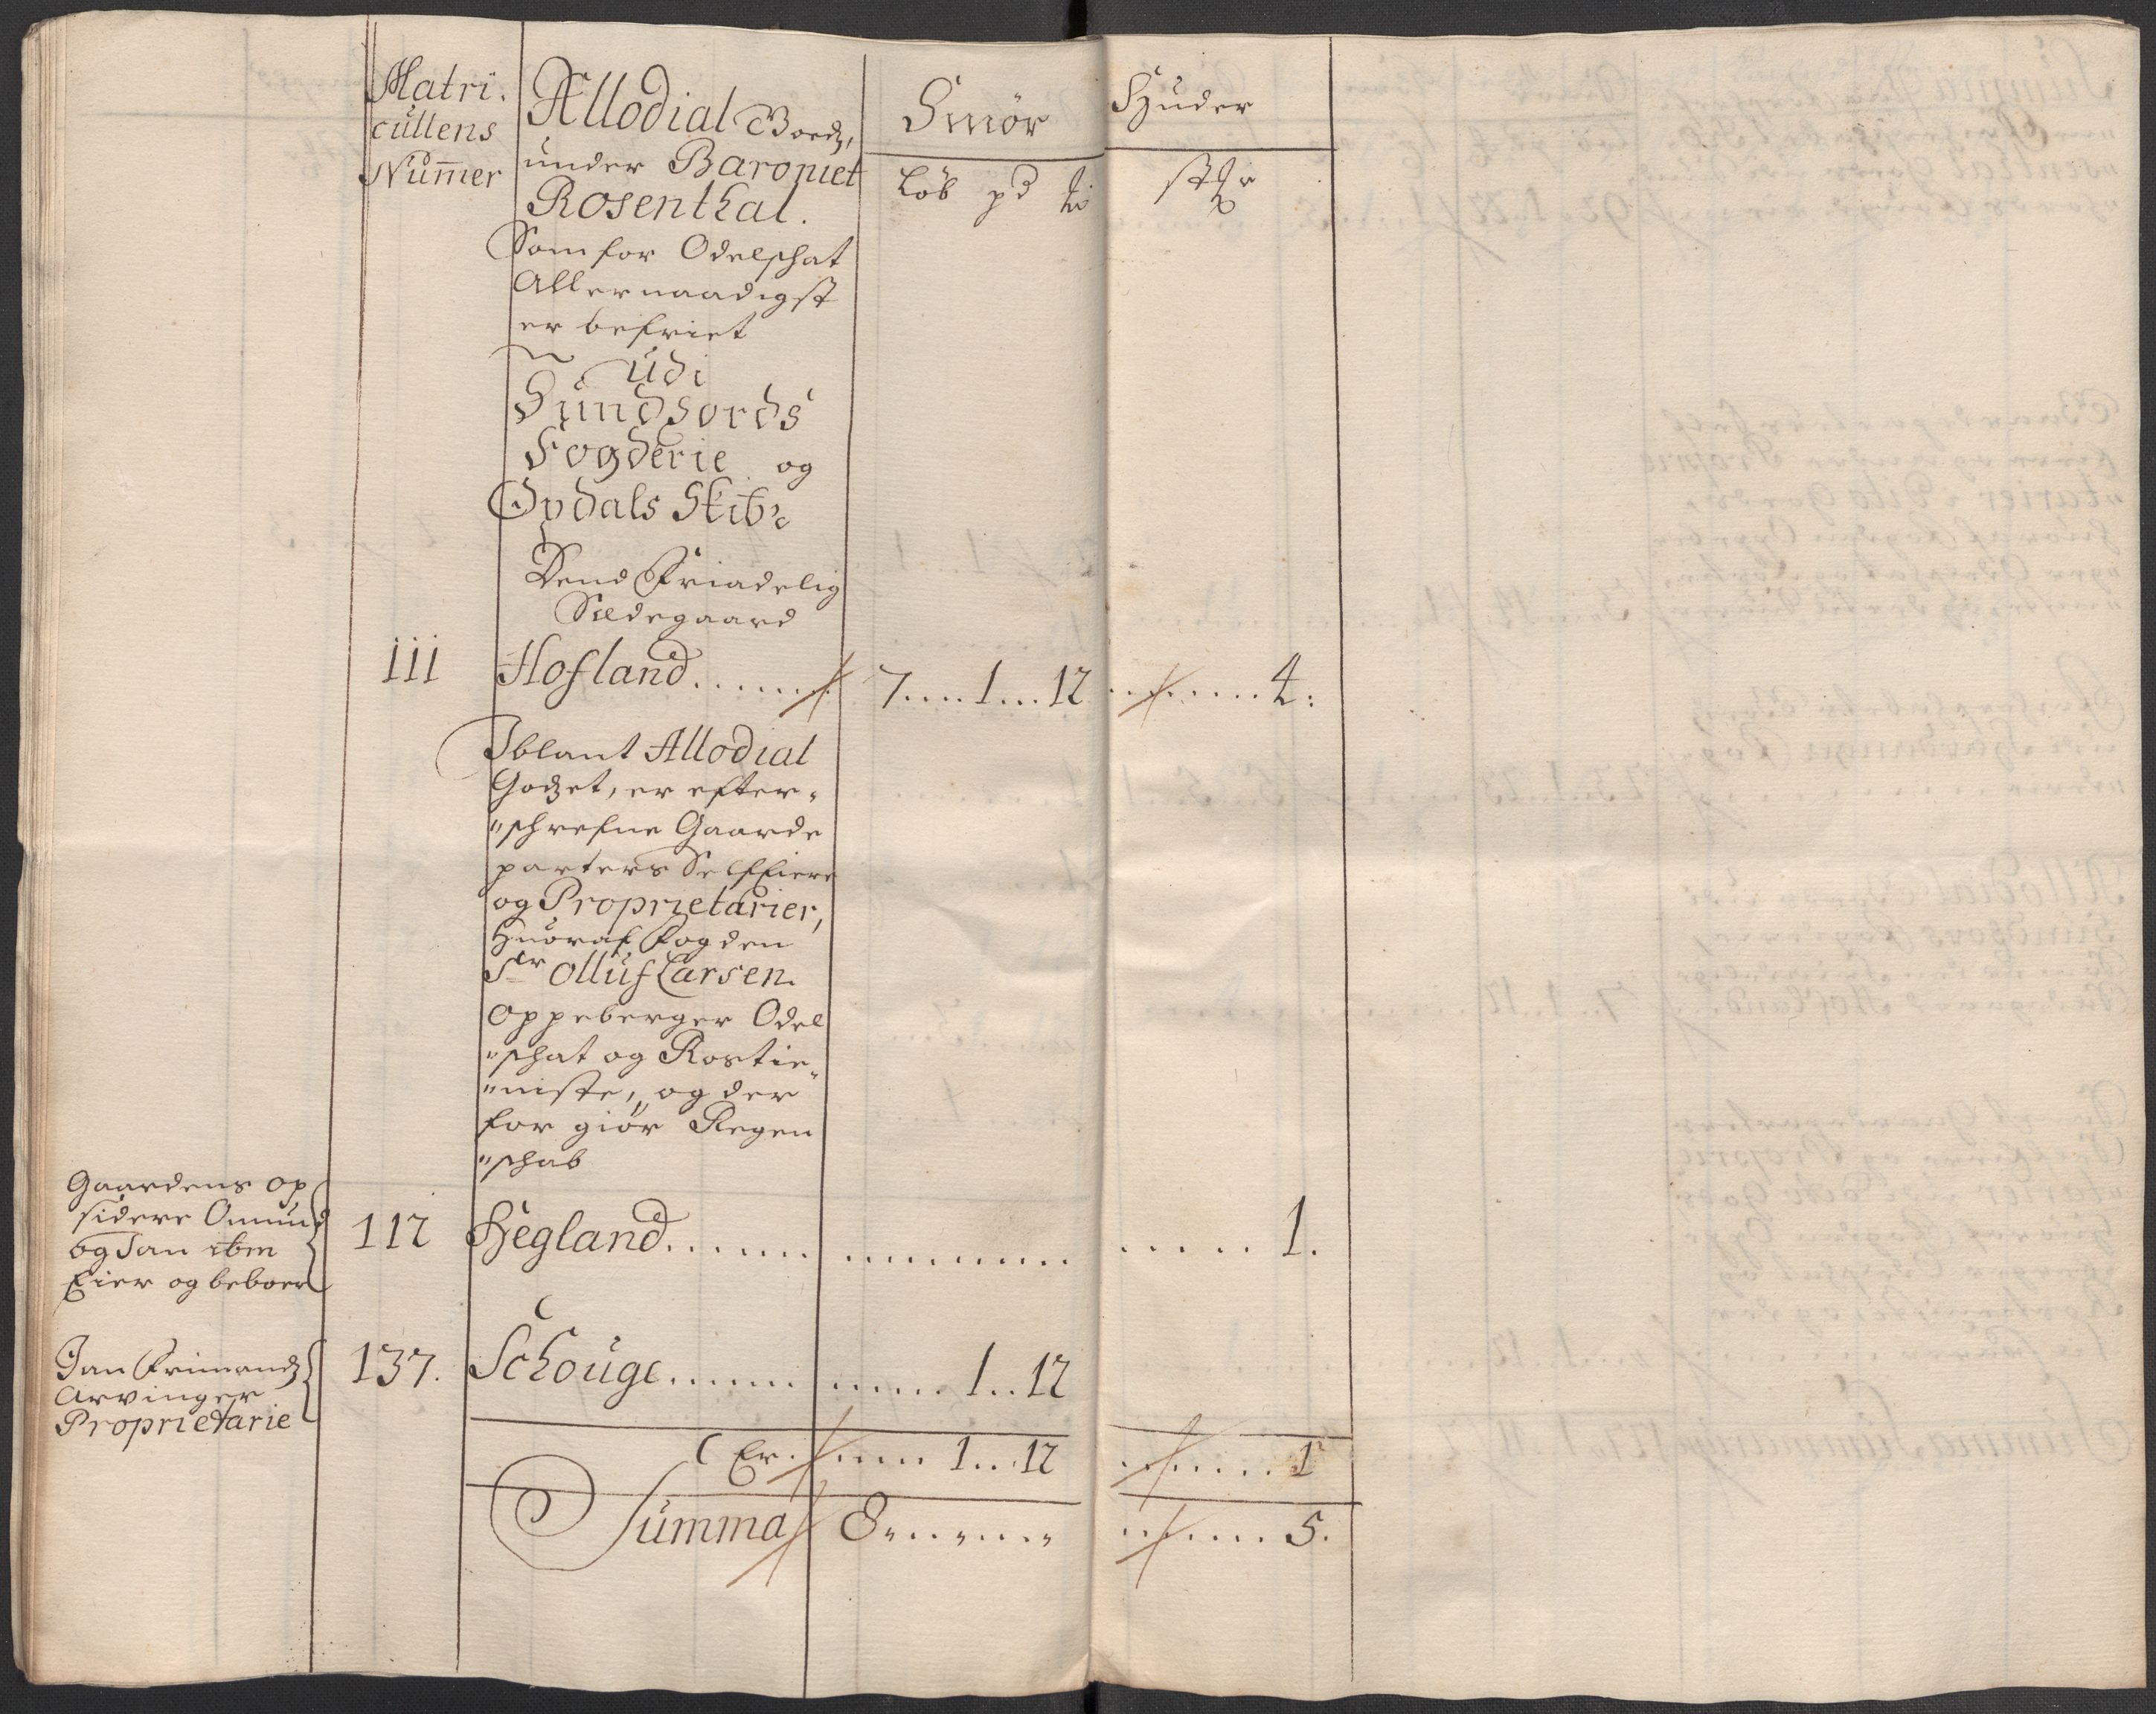 Matri-
cullens
Nummer
Allodial Goedz,
under Baroniet
Rosenthal.
Smör
Huder
Löb pd
Som for Odelschat
Allernaadigst
er befriet
Udi
Sundhords
Fogderie og
Opdals Skibr
Dend Friadelig
Sædegaard
111 Hofland....... 7....1...12 ........4:
Iblant Allodial
Godzet, er efter-
"schrefne Gaarde
parters Selfeiere
og Proprietarier,
Huoraf Fogden
Sr Olluf Larsen
oppeberger Odel
"schat og Rostie-
"niste, og der
for giör Regen
"schab
Gaardens op
sidere Omund
og Jan
Eier og beboer
112 Hegland....... ......... ..... 1.
Jan Frimandz
Arvinger
Proprietarie
137. Schouge...... ..... 1..12
Er. ..... 1...12 ...... 1
Summa 8....... ...... 5.